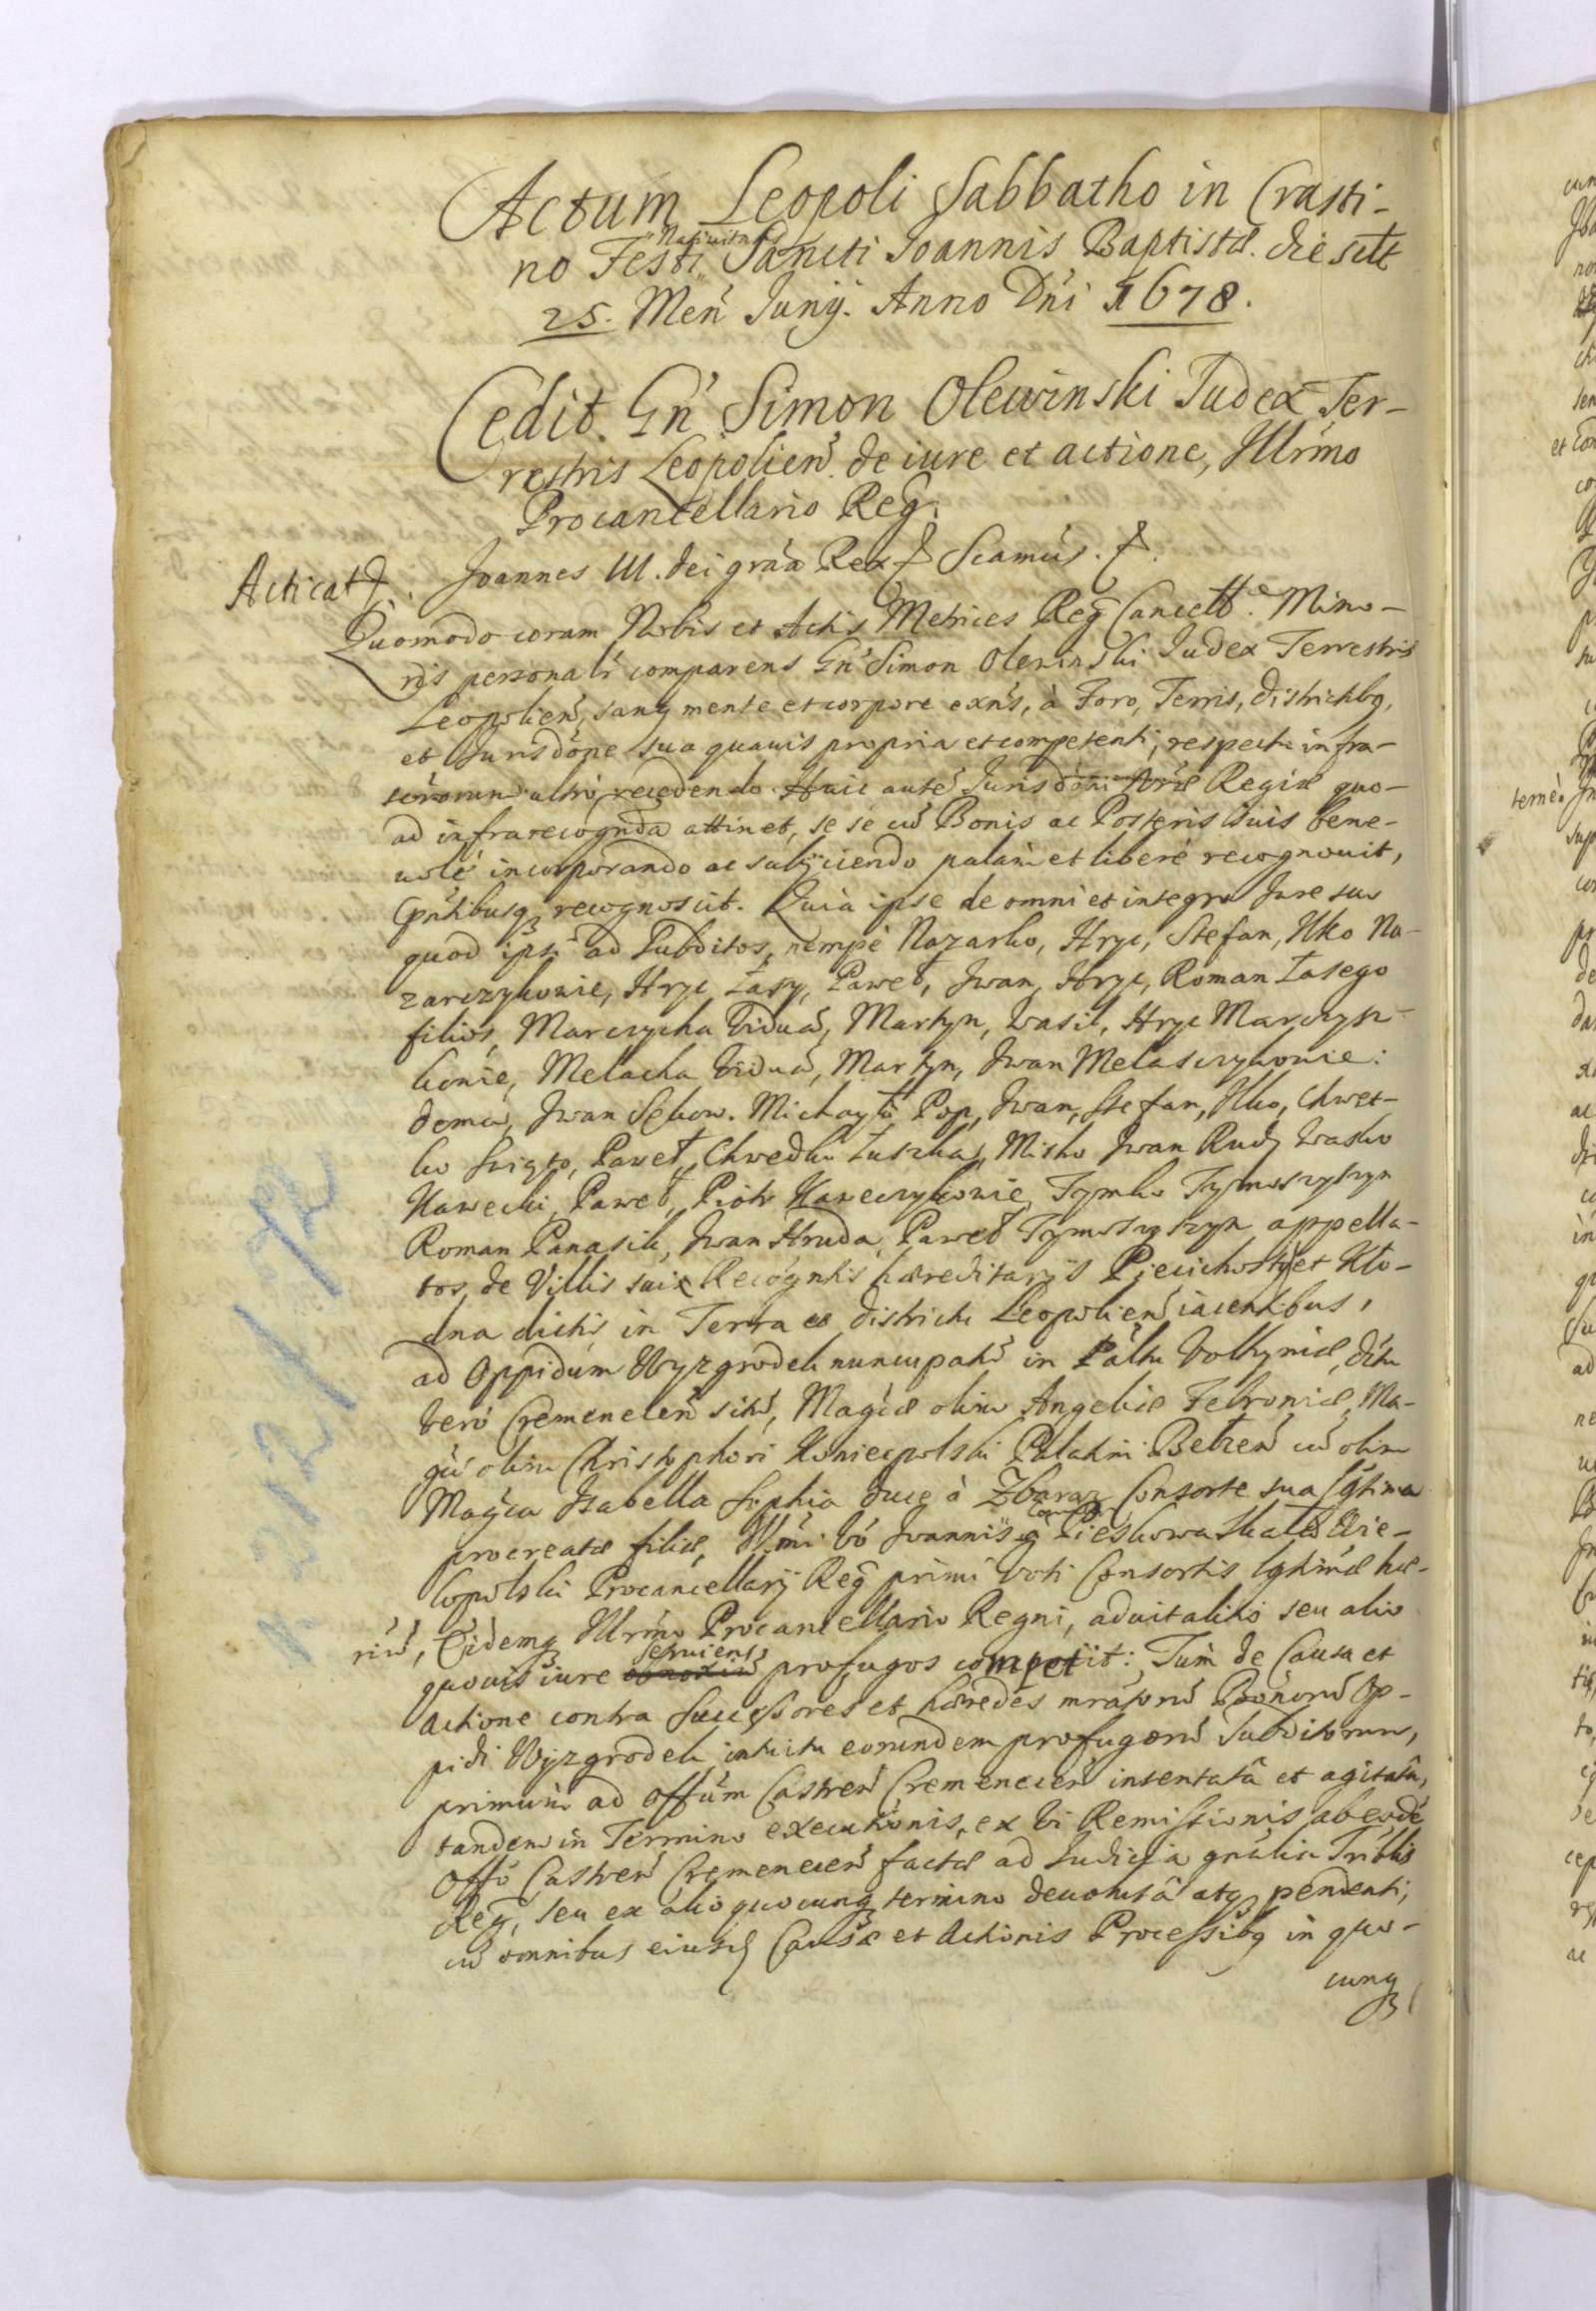 Actum Leopoli Sabbatho in Crasti-
no Festi Natiuitatis Sancti Joannis Baptistæ. die sctt
25. Men Junÿ. Anno Dni 1678.
Cedit Gn Simon Olewinski Judex Ter-
restris Leopolien de iure et actione, Illrmo
Procancellario Reg.
Acticat
Joannes III. dei gra Rex Scamus.
Quomodo coram Nobis et Actis Metrices Reg Cancell Mino-
ris personalr comparens Gn Simon Olewinski Judex Terrestris
Leopolien, sanq mente et corpore exns, à Foro, Terris, districtbq,
et Jurisdone sua quauis propria et competenti, respectu infra-
scrorum ultrò recedendo. Huic autē Jurisdoni Regiæ quo-
ad infrarecognda attinet, se se cū Bonis ac Posteris suis bene-
uole incorporando ac subÿciendo palàm et liberè recognouit,
Pntibusq recognoscit. Quia ipse de omni et integro Jure suo
quod ipsi ad Subditos, nempè Nazarko, Hryc, Stefan, Ilko Na-
zarczykowie, Hryc Łasy, Paweł, Jwan, Hryc, Roman Łasego
filios, Marczycha Viduā, Martyn, Wasil, Hryc Marczysz-
kowie, Melacha Viduā, Martyn, Jwan Melasczykowie:
demū, Jwan Sekow. Michayło Pop, Jwan, Stefan, Ilko, Chwet-
ko Swięto, Paweł, Chwedko Łuszka, Misko Jwan Rudy Wasko
Kawecki, Paweł, Piotr Kaweczykowie, Tymko Tymoszyszyn
Roman Panasik, Jwan Hruda, Paweł Tymoszyszyn appella-
tos, de Villis suis Recogntis hæreditarÿs Pieczichosty et Kło-
dna dictis in Terra et districtu Leopolien iacentibus,
ad Oppidum Wyzgrodek nuncupatū in Palttu Volhyniæ, dittu
verò Cremenecen sitū, Magcæ olim Angeliæ Febroniæ, Ma-
gci olim Christophori Koniecpolski Palatini Bełzen cū olim
Magca Jsabella Sophia duce à Zbaraz Consorte sua lgtima
procreatæ filiæ, Illmi vò Joannis Comitis à Pieskowaskała Wie-
lopolski Procancellarÿ Reg primi voti Consortis lgtimæ hæ-
riū, Eidemq Illrmo Procancellario Regni, aduitalitio seu alio
quouis iure seruiens profugos competiit: Tum de Causa et
Actione contra Successores et hæredes mratorū Bonorū Op-
pidi Wyzgrodek intuitu eorundem profugorū Subditorum,
primùm ad Offum Castren Cremenecen intentatâ et agitatâ,
tandem in Termino executionis, ex vi Remissionis ab eodē
Offo Castren Cremenecen factæ ad Judicia gnalia Triblis
Reg, seu ex alio quocunq termino deuolutâ atq pendenti,
cū omnibus eiusd Causæ et Actionis Processibq in quo-
cunq